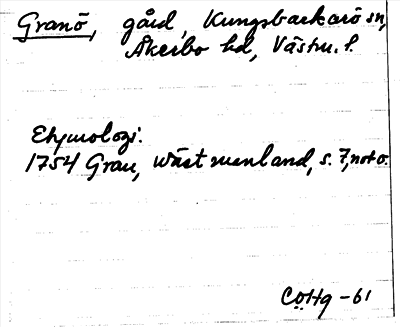 Granö, gård, Kungsbarkarö sn,
Åkerbo hd, Västm. l.
Etymologi:
1754 Grau, Wästmenland, s. 7, not o.
CÖHg -61